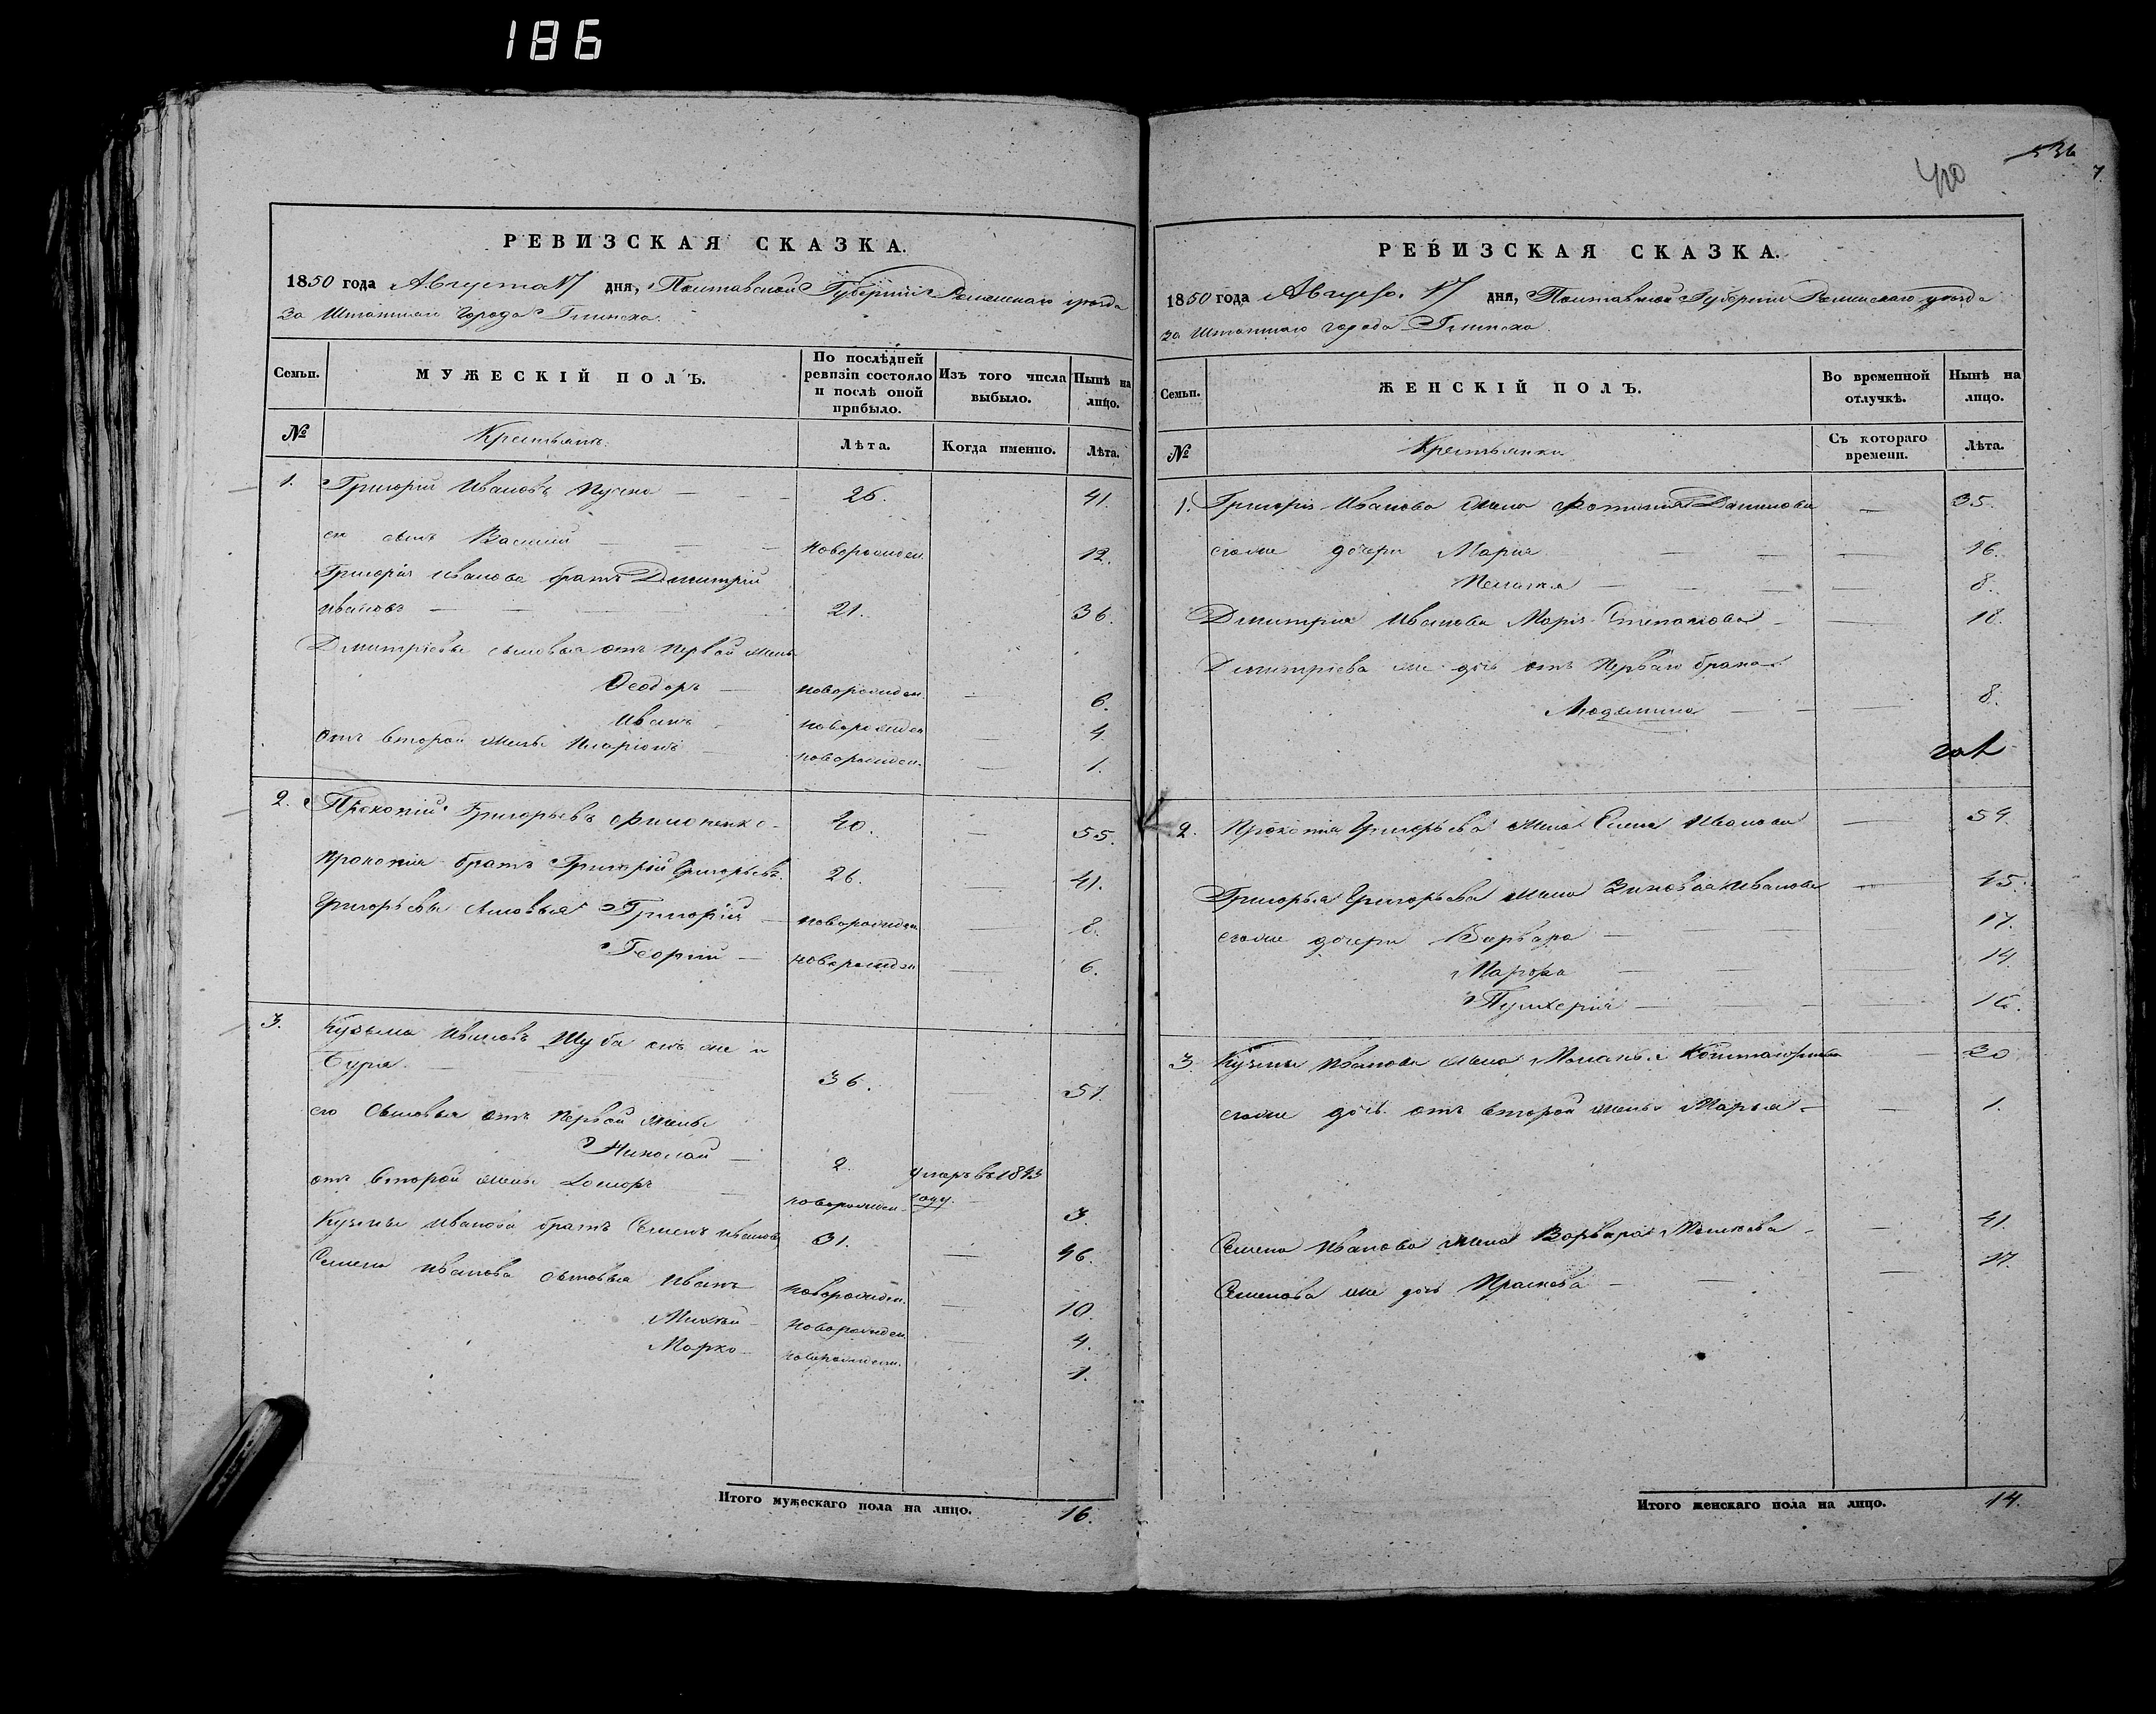 186
536
400
РЕВИЗСКАЯ СКАЗКА.
1850 года Августа 17 дня, Полтавской Губерніи Роменскаго уѣзда
За Штатнаго города Глинска.
Семьи. МУЖЕСКІЙ ПОЛЪ. По послѣдней ревизіи состояло и послѣ оной прибыло. Изъ того числа выбыло. Нынѣ на лицо.
№ Крестьяне. Лѣта. Когда именно. Лѣта.
1. Григорій Ивановъ — 26. 41.
его сынъ Василій — новорожден. 12.
Григорія Иванова братъ Дмитрій
Ивановъ — 21. 36.
Дмитріевы сыновья отъ первой жены
Феодоръ — новорожден. — 6.
Иванъ — новорожден — 4
отъ второй жены Иларіонъ — новорожден. — 1.
2. Прокопій Григорьевъ Филоненко — 40. — 55.
Прокопія братъ Григорій Григорьевъ. 26. — 41.
Григорьевы сыновья Григорій — новорожден — 8.
Георгій — новорожден — 6.
3. Кузьма Ивановъ Шуба онъ же и
Бурія — 36. — 51.
его сыновья отъ первой жены
Николай — 2. умеръ въ 1843 году.
от второй жены — новорожден. — 3.
Кузьмы Иванова братъ Семенъ Ивановъ 31. — 46.
Семена Иванова сыновья Иванъ новорожден. — 10.
Михей новорожден. — 4.
Марко новорожден. 1.
Итого мужескаго пола на лицо. 16.
РЕВИЗСКАЯ СКАЗКА.
1850 года Августа 17 дня, Полтавской Губерніи Роменскаго уѣзда
За Штатнаго города Глинска
Семьи. ЖЕНСКІЙ ПОЛЪ. Во временной отлучкѣ. Нынѣ на лицо.
№ Крестьянки Съ котораго времени. Лѣта.
1. Григорія Иванова жена Фотинія Данилова — 35.
егоже дочери Марія — 16.
Пелагея — 8.
Дмитрія Иванова Марія Степанова — 18.
Дмитріева же дочь отъ перваго брака
— 8.
2. Прокопія Григорьева жена Елена Иванова — 54.
Григорья Григорьева жена Зиновія Иванова — 45.
егоже дочери Варвара — 17.
Марфа — 14.
Пулхерія — 16.
3 Кузьмы Иванова жена Меланья — 30
егоже дочь отъ второй жены Марья — 1.
Семена Иванова жена Варвара — 41.
Семенова же дочь Прасковья — 17.
Итого женскаго пола на лицо. 14.